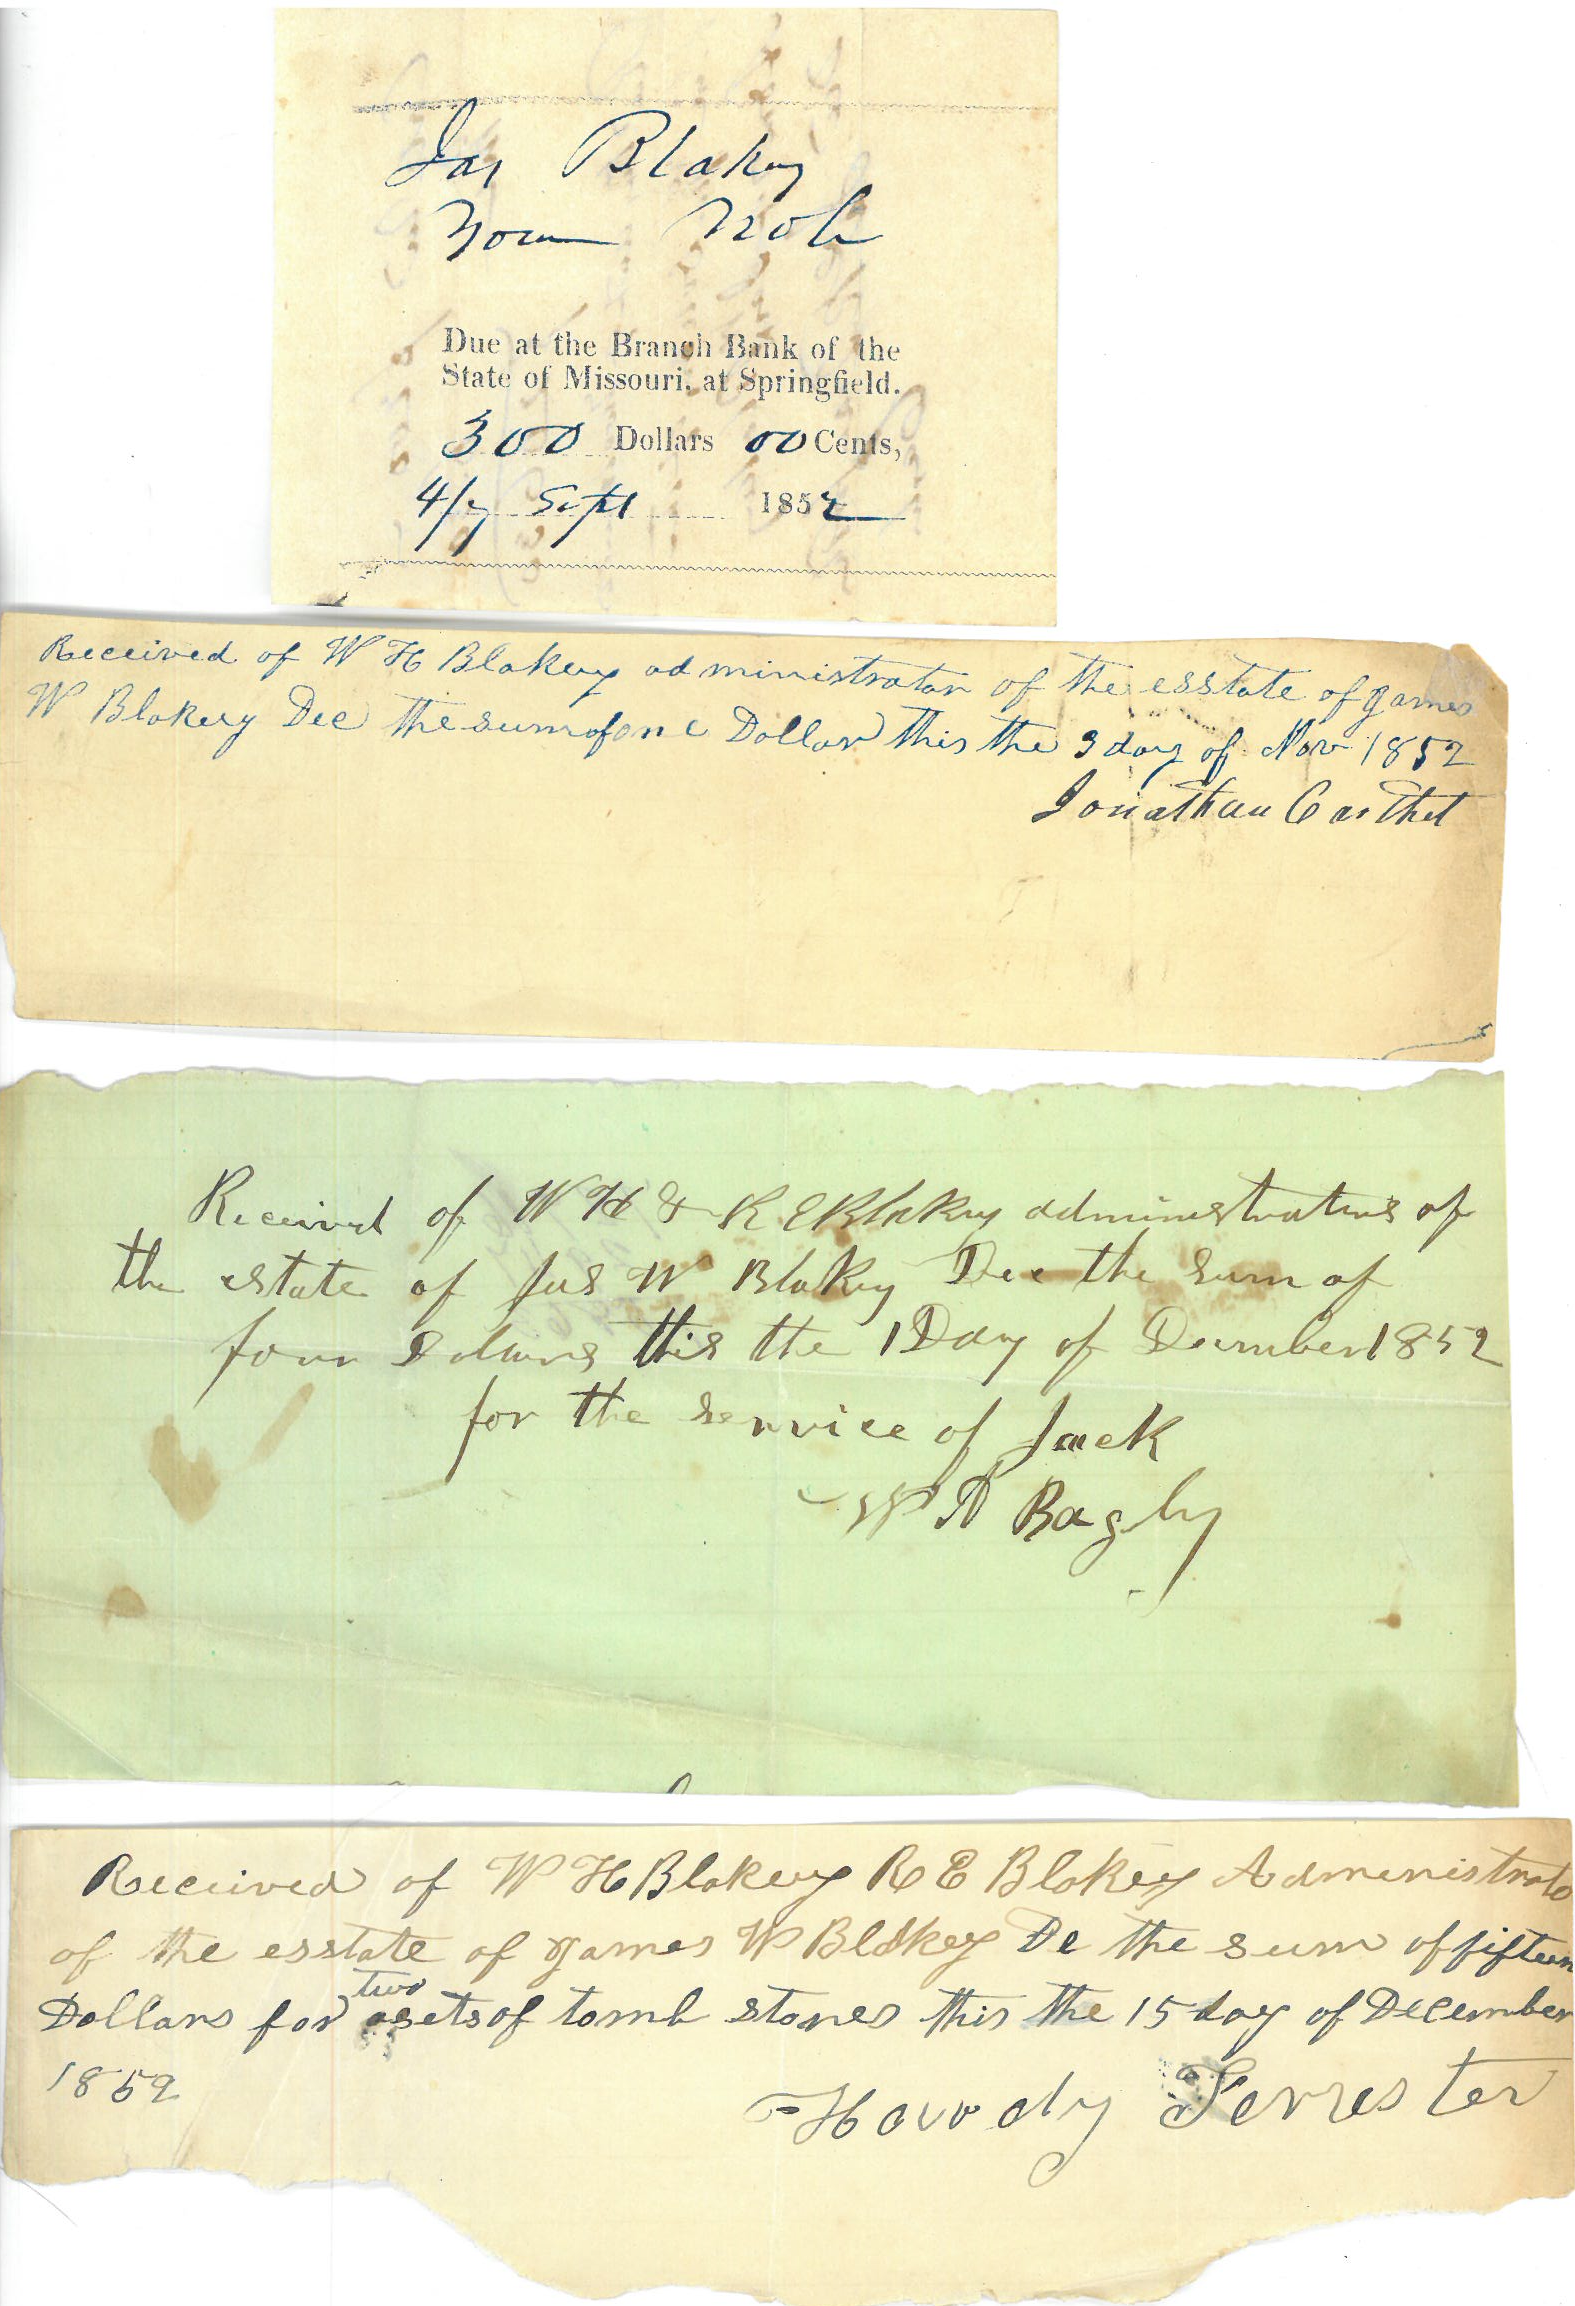 Jas Blakey
Your Note
Due at the Branch Bank of the
State of Missouri, at Springfield.
300 Dollars 00 Cents,
4/7 Sept 1852
Received of W H Blakey administrator of the esstate of James
W Blakey Dec the sum of one Dollar this the 3 day of Nov 1852
Jonathan
Received of W H & R E Blakey administrators of
the estate of Jas W Blakey Dec the sum of
four Dollars this the 1 Day of December 1852
for the service of Jack
W A Bagby
Received of W H Blakey R E Blakey Administrato
of the esstate of James W Blakey De the sum of fifteen
Dollars for two sets of tomb stones this the 15 day of December
1852